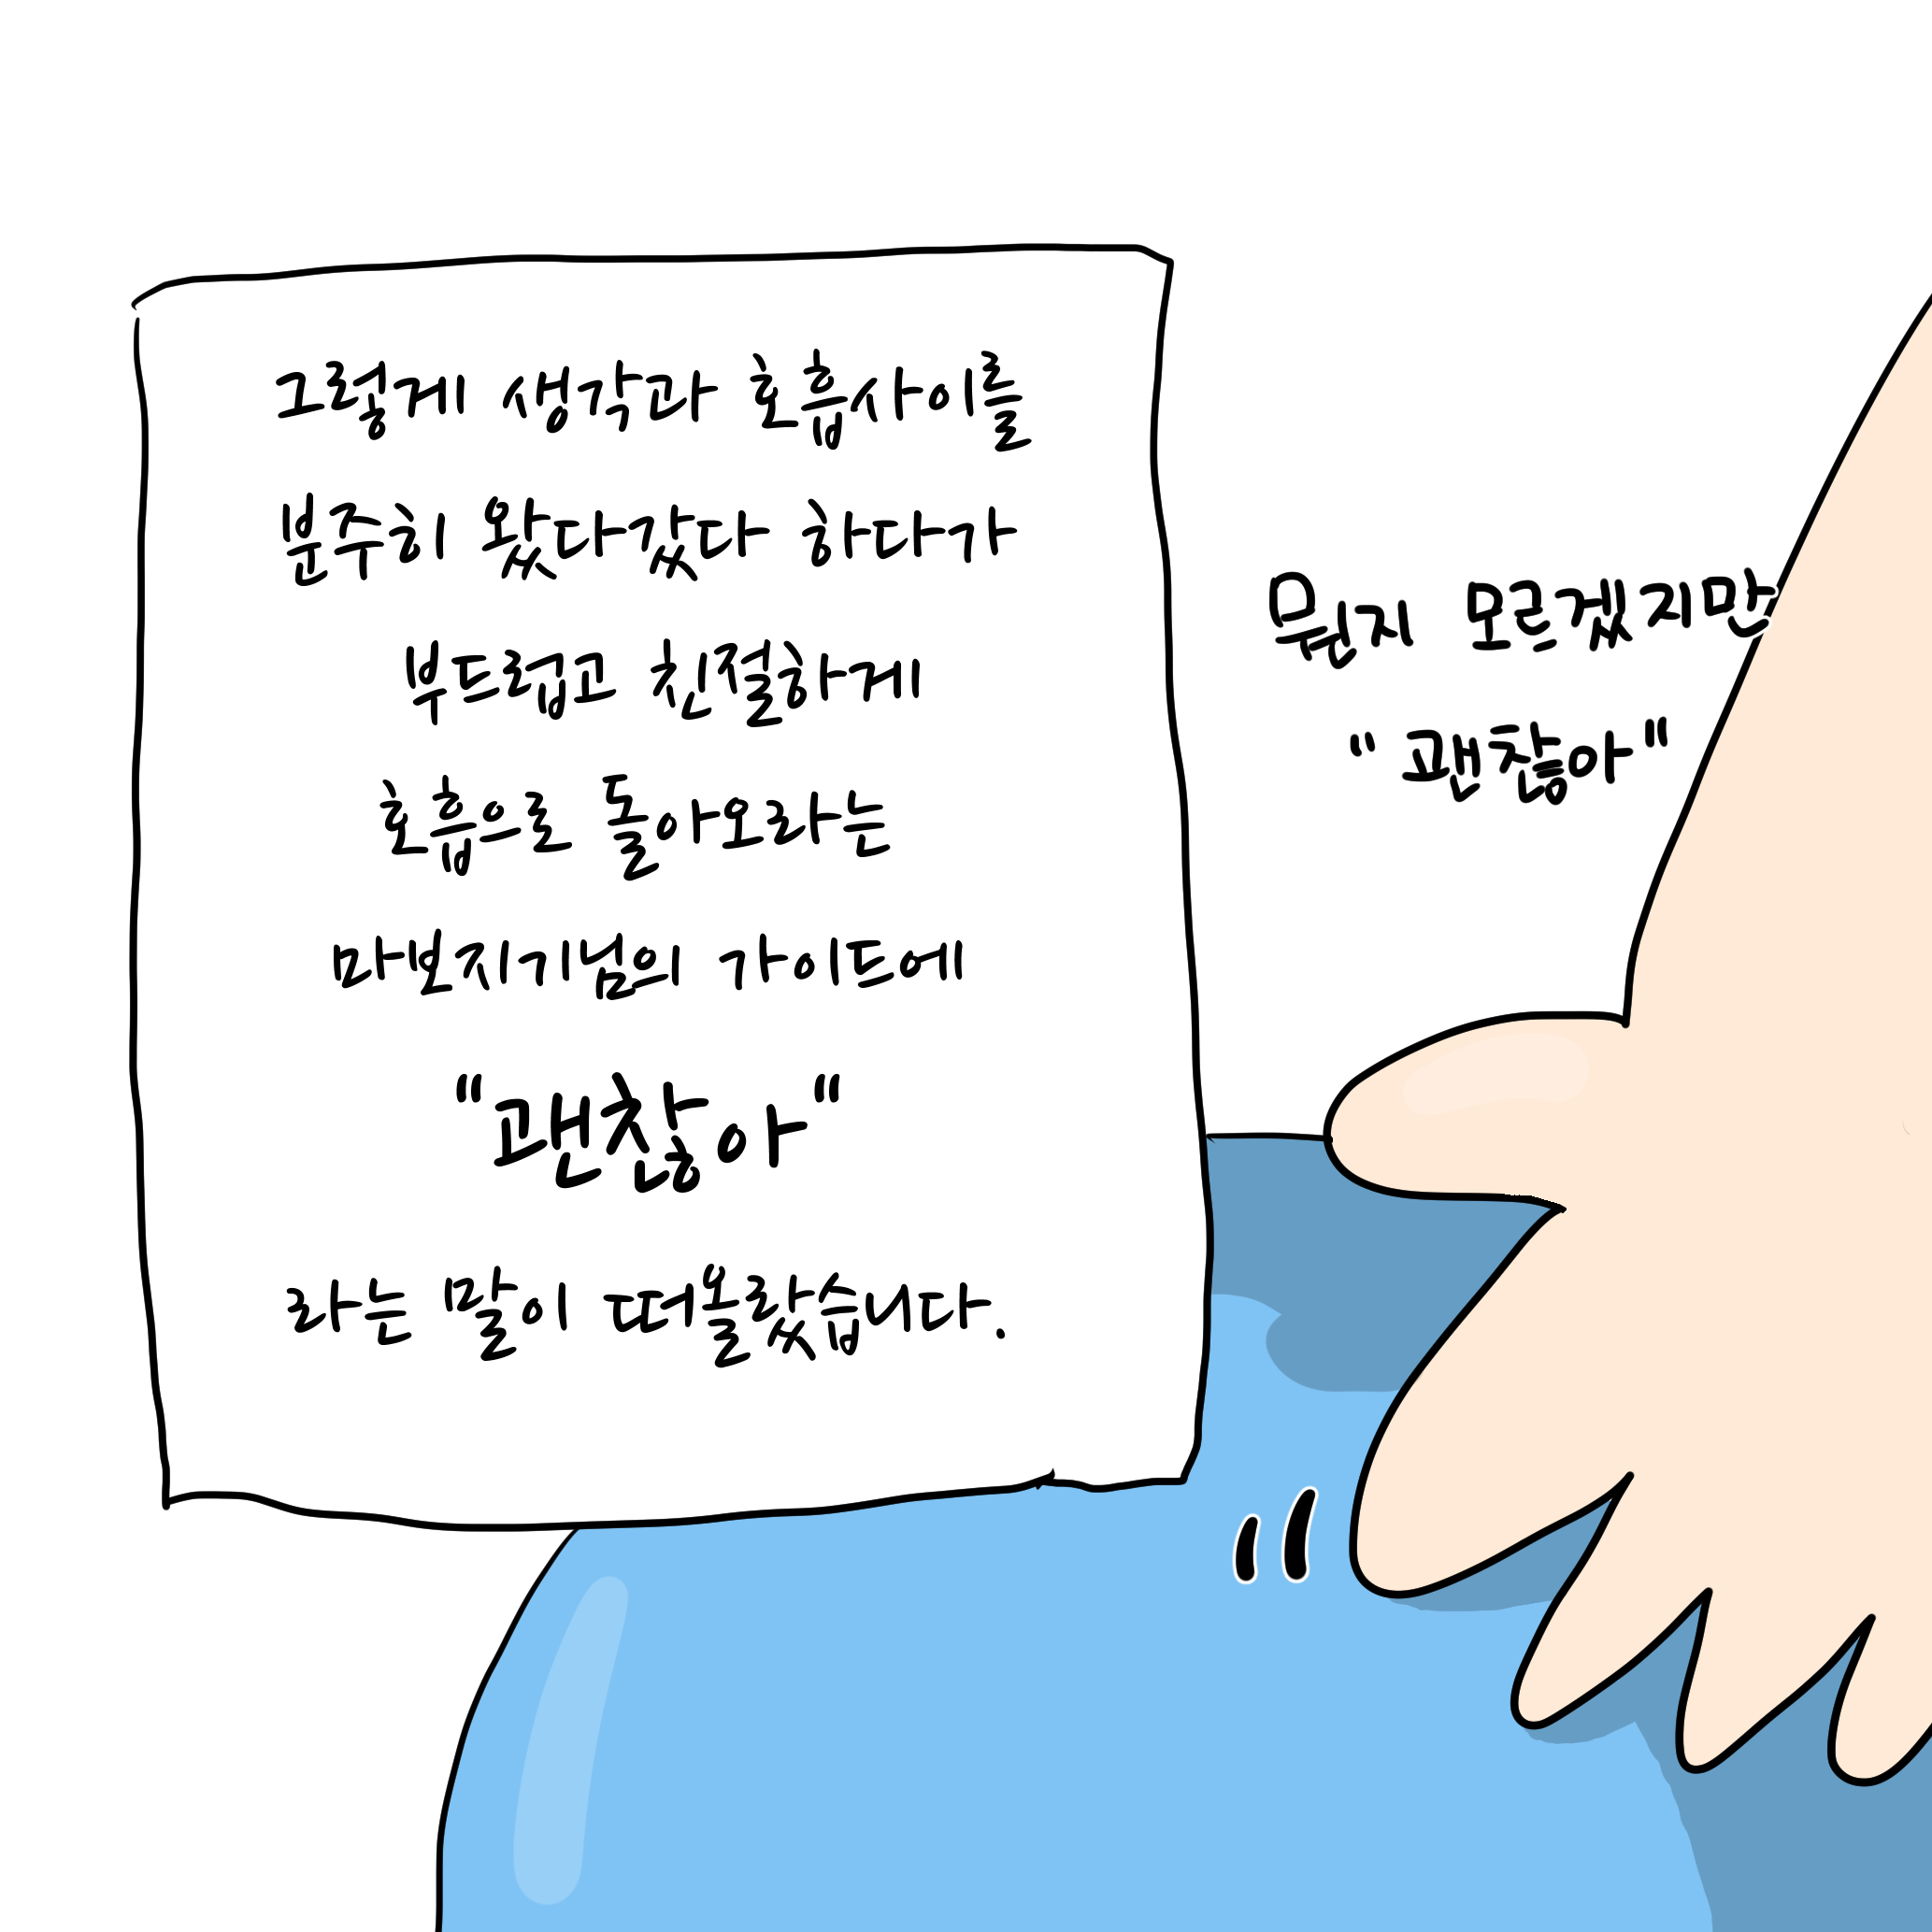 그렇게 생각과 호흡사이를
분주히 왔다갔다 하다가
부드럽고 친절하게
호흡으로 돌아오라는
마보지기님의 가이드에
"괜찮아"
라는 말이 떠올랐습니다.
뭔지 모르겠지만
"괜찮아"